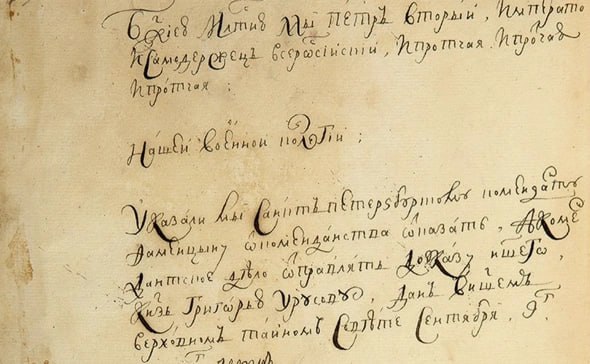 Бжиею млтию мы Петръ вторый, императо
и самодержецъ всеросиискии, и протчая и протчая
и протчая:
Нашей военной колегии:
Указали мы санктъ петерзбургскому коменданту
от комендантства отказать, а коме
дантское дѣло отправлять до указу ншего,
кнзь Григорью Урусову, данъ в ншемъ
верховномъ тайномъ Совѣте Сентября, 9г